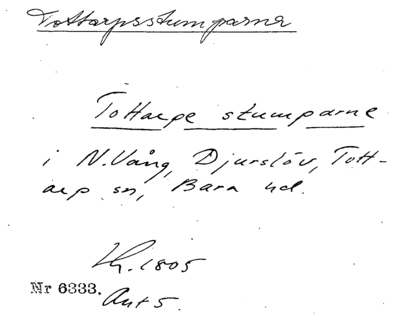 Tottarpsstumparna
Tottarpe stumparne
i N. Vång, Djurslöv, Tott-
arp sn, Bara hd.
Lh. 1805
Nr 6333.
Akt 5.